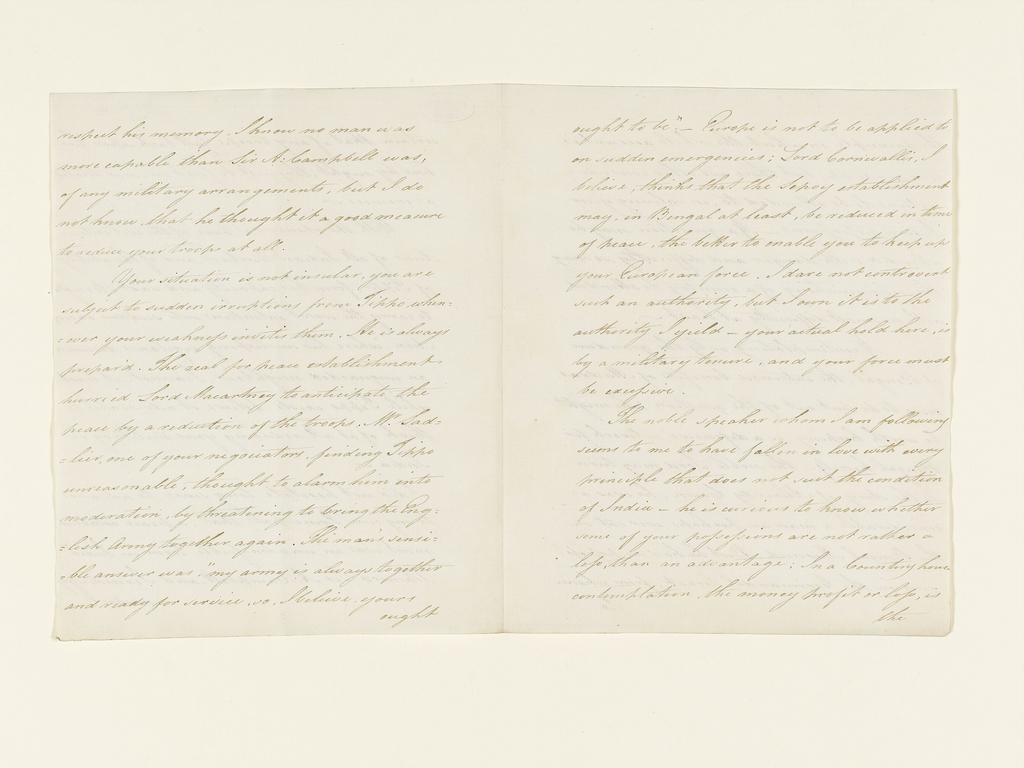 respect his memory. I know no man was
more capable than Sir A. Campbell was,
of any military arrangements, but I do
not know, that he thought it a good measure
to reduce your troops at all.
Your situation is not insular, you are
subject to sudden irruptions from Tippo, when=
=ever your weakness invites them. He is always
prepar'd. The zeal for peace establishment
hurried Lord Macartney to anticipate the
peace by a reduction of the troops. Mr. Sad=
=lier, one of your negociators, finding Tippo
unreasonable, thought to alarm him into
moderation, by threatening to bring the Eng=
=lish Army together again. The man's sensi=
=ble answer was, "my army is always together
and ready for service, so, I believe, yours
ought
ought to be" — Europe is not to be applied to
on sudden emergencies; Lord Cornwallis, I
believe, thinks that the Sepoy establishment
may, in Bengal at least, be reduced in time
of peace, the better to enable you to keep up
your European force. I dare not controvert
such an authority, but I own it is to the
authority I yield — your actual hold here, is
by a military tenure, and your force must
be excessive.
The noble speaker whom I am following
seems to me to have fallen in love with every
principle that does not suit the condition
of India — he is curious to know whether
some of your possessions are not rather a
loss, than an advantage: In a Counting house
contemplation, the money profit or loss, is
the